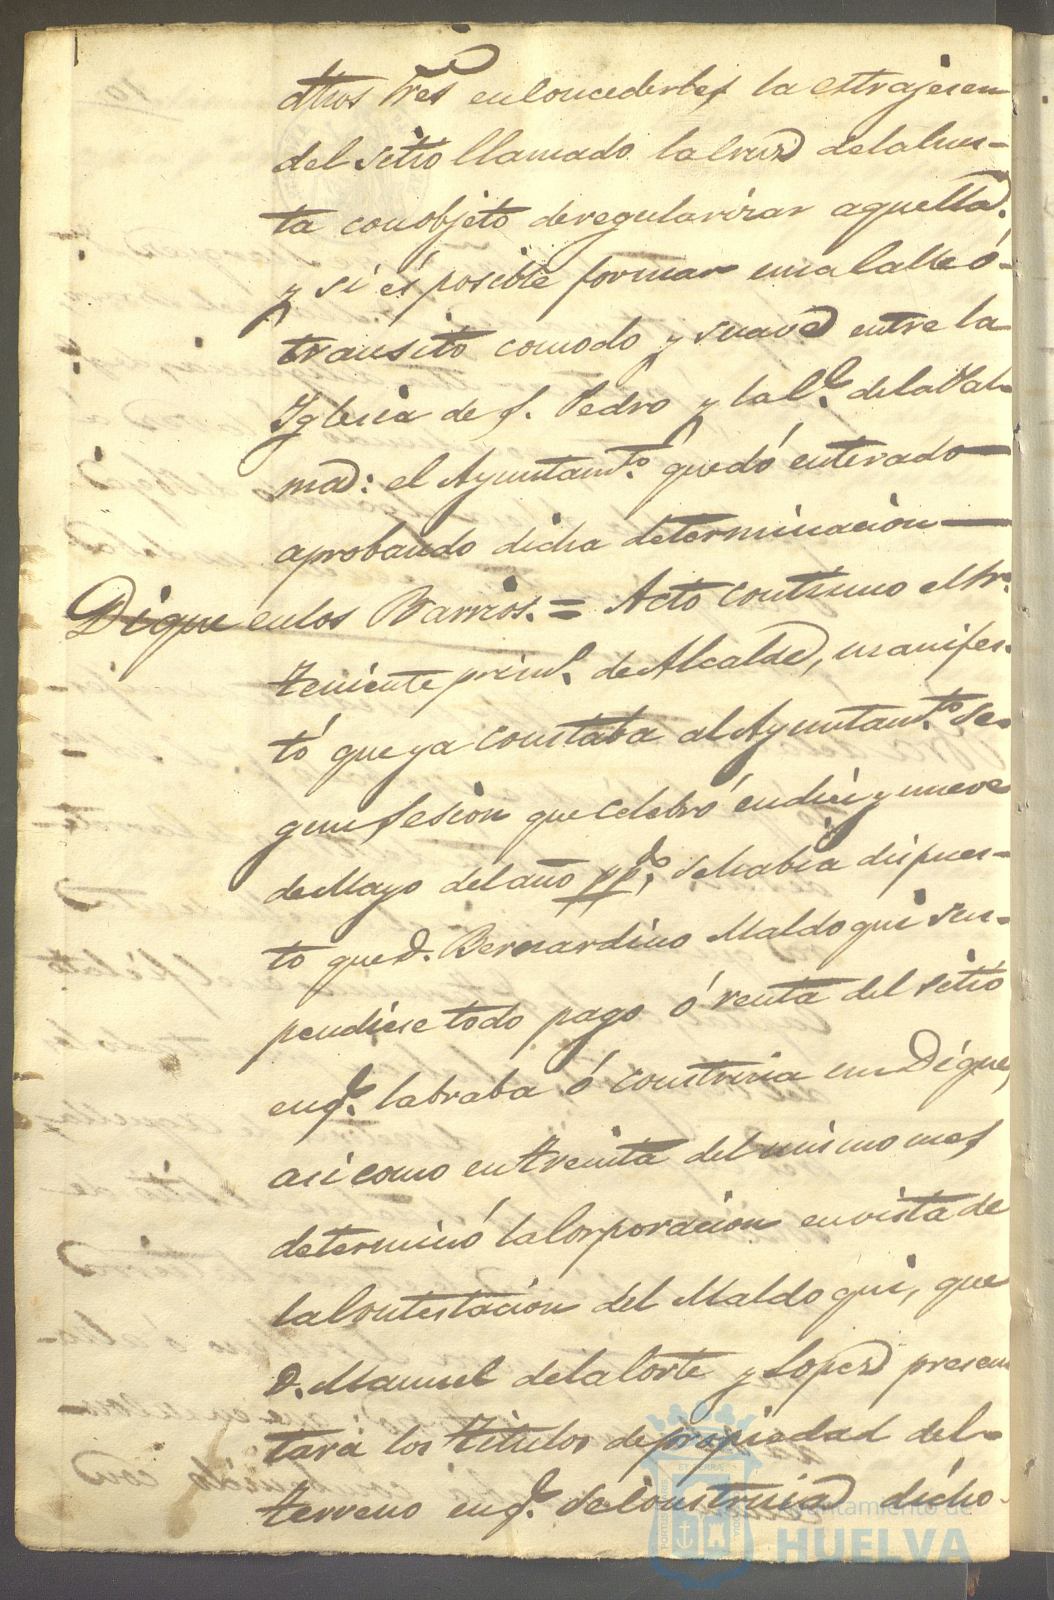 dhos Sres en concederles la estrajesen
del sitio llamado la cruz de la cues-
ta con objeto de regularizar aquella,
y si és posible formar una calle ó
transito comodo y suave entre la
Iglesia de S. Pedro y la C.e de la Pal-
ma: el Ayuntam.to quedó enterado
aprobando dicha determinacion
Dique en los Barrios. = Acto continuo el Sr.
teniente prim.o de Alcalde, manifes-
tó que ya constaba al Ayuntam.to se-
gun sesion que celebró en diez y nueve
de Mayo del año pp.do se habia dispues-
to que D. Bernardino Maldoqui sus-
pendiese todo pago ó renta del sitio
en q.e labraba ó construia un Dique,
asi como en treinta del mismo mes
determinó la Corporacion en vista de
la Contestacion del Maldoqui, que
D. Manuel de la Corte y Lopez presen
tara los titulos de propiedad del
terreno en q.e se construia dicho
Ayuntamiento de
HUELVA